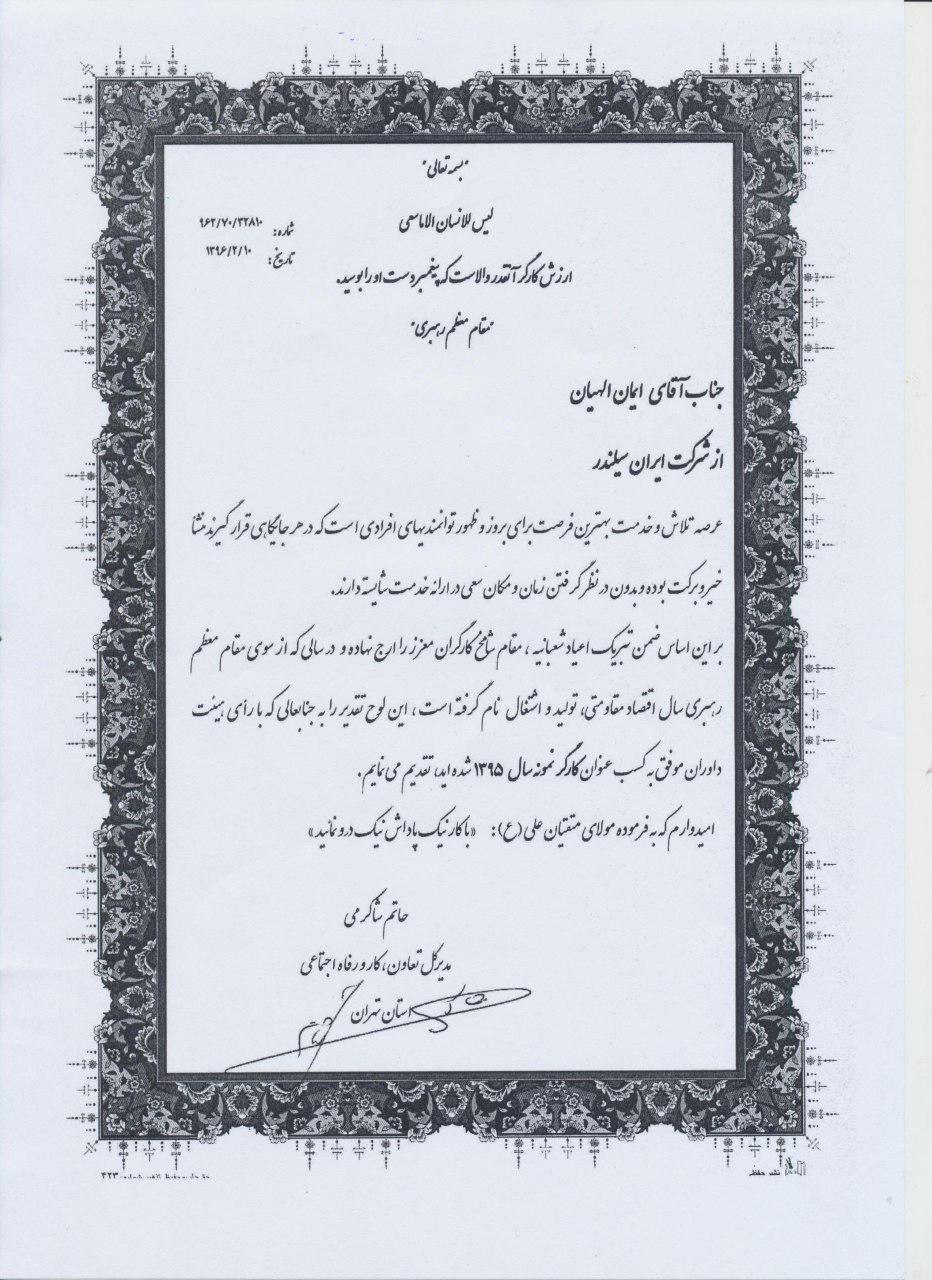 "بسمه تعالی"
لیس للانسان الا ما سعی
شماره: ۹۶۲/۷۰/۳۲۸۱۰
تاریخ: ۱۳۹۶/۲/۱۰
ارزش کارگر آنقدر والاست که پیغمبر دست او را بوسید.
"مقام معظم رهبری"
جناب آقای ایمان الهیان
از شرکت ایران سیلندر
عرصه تلاش و خدمت بهترین فرصت برای بروز و ظهور توانمندیهای افرادی است که در هر جایگاهی قرار گیرند منشا
خیر و برکت بوده و بدون در نظر گرفتن زمان و مکان سعی در ارائه خدمت شایسته دارند.
بر این اساس ضمن تبریک اعیاد شعبانیه ، مقام شامخ کارگران معزز را ارج نهاده و در سالی که از سوی مقام معظم
رهبری سال اقتصاد مقاومتی، تولید و اشتغال نام گرفته است ، این لوح تقدیر را به جنابعالی که با رأی هیئت
داوران موفق به کسب عنوان کارگر نمونه سال ۱۳۹۵ شده اید، تقدیم می نمایم.
امیدوارم که به فرموده مولای متقیان علی (ع): «با کار نیک پاداش نیک درو نمائید»
حاتم شاکرمی
مدیرکل تعاون، کار و رفاه اجتماعی
استان تهران
نشر حفظ
۴۲۳